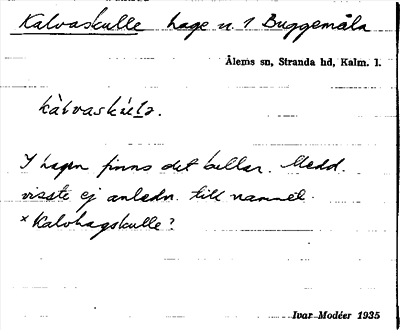 Kalvaskulle hage n. 1 Buggemåla
Ålems sn, Stranda hd, Kalm. l.
I hagen finns det kullar. Medd.
visste ej anledn. till namnet.
* Kalvhagskulle?
Ivar Modéer 1935